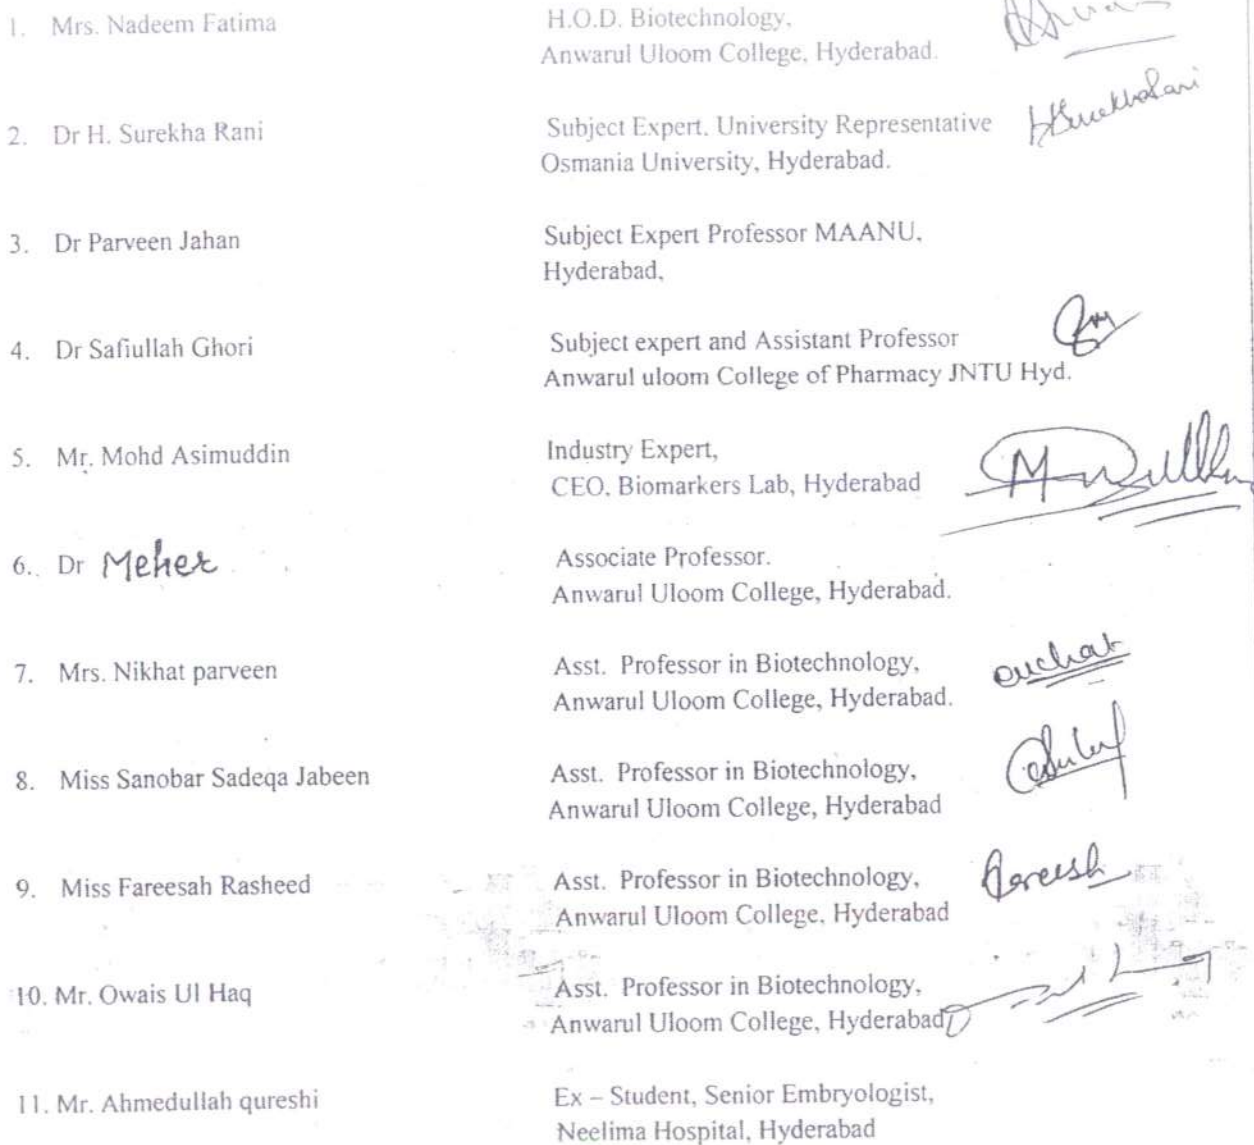 1. Mrs. Nadeem Fatima H.O.D. Biotechnology,
Anwarul Uloom College, Hyderabad.
2. Dr H. Surekha Rani Subject Expert. University Representative HSurekhaRani
Osmania University, Hyderabad.
3. Dr Parveen Jahan Subject Expert Professor MAANU.
Hyderabad,
4. Dr Safiullah Ghori Subject expert and Assistant Professor
Anwarul uloom College of Pharmacy JNTU Hyd.
5. Mr. Mohd Asimuddin Industry Expert,
CEO, Biomarkers Lab, Hyderabad
6. Dr Meher Associate Professor.
Anwarul Uloom College, Hyderabad.
7. Mrs. Nikhat parveen Asst. Professor in Biotechnology,
Anwarul Uloom College, Hyderabad.
8. Miss Sanobar Sadeqa Jabeen Asst. Professor in Biotechnology,
Anwarul Uloom College, Hyderabad
9. Miss Fareesah Rasheed Asst. Professor in Biotechnology, Fareesh
Anwarul Uloom College, Hyderabad
10. Mr. Owais Ul Haq Asst. Professor in Biotechnology,
Anwarul Uloom College, Hyderabad
11. Mr. Ahmedullah qureshi Ex – Student, Senior Embryologist,
Neelima Hospital, Hyderabad